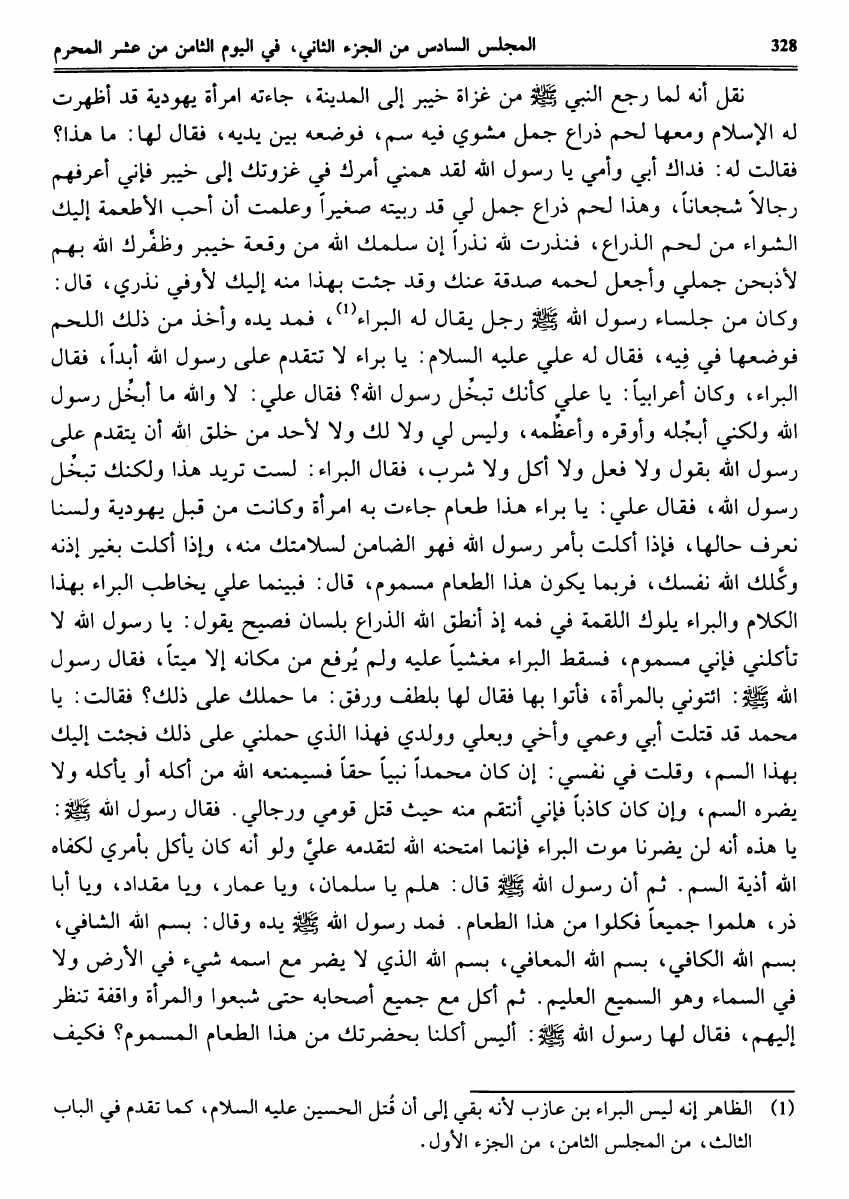 328 المجلس السادس من الجزء الثاني، في اليوم الثامن من عشر المحرم
نقل أنه لما رجع النبي ﷺ من غزاة خيبر إلى المدينة، جاءته امرأة يهودية قد أظهرت
له الإسلام ومعها لحم ذراع جمل مشوي فيه سم، فوضعه بين يديه، فقال لها: ما هذا؟
فقالت له: فداك أبي وأمي يا رسول الله لقد همني أمرك في غزوتك إلى خيبر فإني أعرفهم
رجالاً شجعاناً، وهذا لحم ذراع جمل لي قد ربيته صغيراً وعلمت أن أحب الأطعمة إليك
الشواء من لحم الذراع، فنذرت لله نذراً إن سلمك الله من وقعة خيبر وظفَّرك الله بهم
لأذبحن جملي وأجعل لحمه صدقة عنك وقد جئت بهذا منه إليك لأوفي نذري، قال:
وكان من جلساء رسول الله ﷺ رجل يقال له البراء(1)، فمد يده وأخذ من ذلك اللحم
فوضعها في فِيه، فقال له علي عليه السلام: يا براء لا تتقدم على رسول الله أبداً، فقال
البراء، وكان أعرابياً: يا علي كأنك تبخُل رسول الله؟ فقال علي: لا والله ما أبخُل رسول
الله ولكني أبجُله وأوقره وأعظُمه، وليس لي ولا لك ولا لأحد من خلق الله أن يتقدم على
رسول الله بقول ولا فعل ولا أكل ولا شرب، فقال البراء: لست تريد هذا ولكنك تبخُل
رسول الله، فقال علي: يا براء هذا طعام جاءت به امرأة وكانت من قبل يهودية ولسنا
نعرف حالها، فإذا أكلت بأمر رسول الله فهو الضامن لسلامتك منه، وإذا أكلت بغير إذنه
وكَّلك الله نفسك، فربما يكون هذا الطعام مسموم، قال: فبينما علي يخاطب البراء بهذا
الكلام والبراء يلوك اللقمة في فمه إذ أنطق الله الذراع بلسان فصيح يقول: يا رسول الله لا
تأكلني فإني مسموم، فسقط البراء مغشياً عليه ولم يُرفع من مكانه إلا ميتاً، فقال رسول
الله ﷺ: ائتوني بالمرأة، فأتوا بها فقال لها بلطف ورفق: ما حملك على ذلك؟ فقالت: يا
محمد قد قتلت أبي وعمي وأخي وبعلي وولدي فهذا الذي حملني على ذلك فجئت إليك
بهذا السم، وقلت في نفسي: إن كان محمداً نبياً حقاً فسيمنعه الله من أكله أو يأكله ولا
يضره السم، وإن كان كاذباً فإني أنتقم منه حيث قتل قومي ورجالي. فقال رسول الله ﷺ:
يا هذه أنه لن يضرنا موت البراء فإنما امتحنه الله لتقدمه عليَّ ولو أنه كان يأكل بأمري لكفاه
الله أذية السم. ثم أن رسول الله ﷺ قال: هلم يا سلمان، ويا عمار، ويا مقداد، ويا أبا
ذر، هلموا جميعاً فكلوا من هذا الطعام. فمد رسول الله ﷺ يده وقال: بسم الله الشافي،
بسم الله الكافي، بسم الله المعافي، بسم الله الذي لا يضر مع اسمه شيء في الأرض ولا
في السماء وهو السميع العليم. ثم أكل مع جميع أصحابه حتى شبعوا والمرأة واقفة تنظر
إليهم، فقال لها رسول الله ﷺ: أليس أكلنا بحضرتك من هذا الطعام المسموم؟ فكيف
(1) الظاهر إنه ليس البراء بن عازب لأنه بقي إلى أن قُتل الحسين عليه السلام، كما تقدم في الباب
الثالث، من المجلس الثامن، من الجزء الأول.